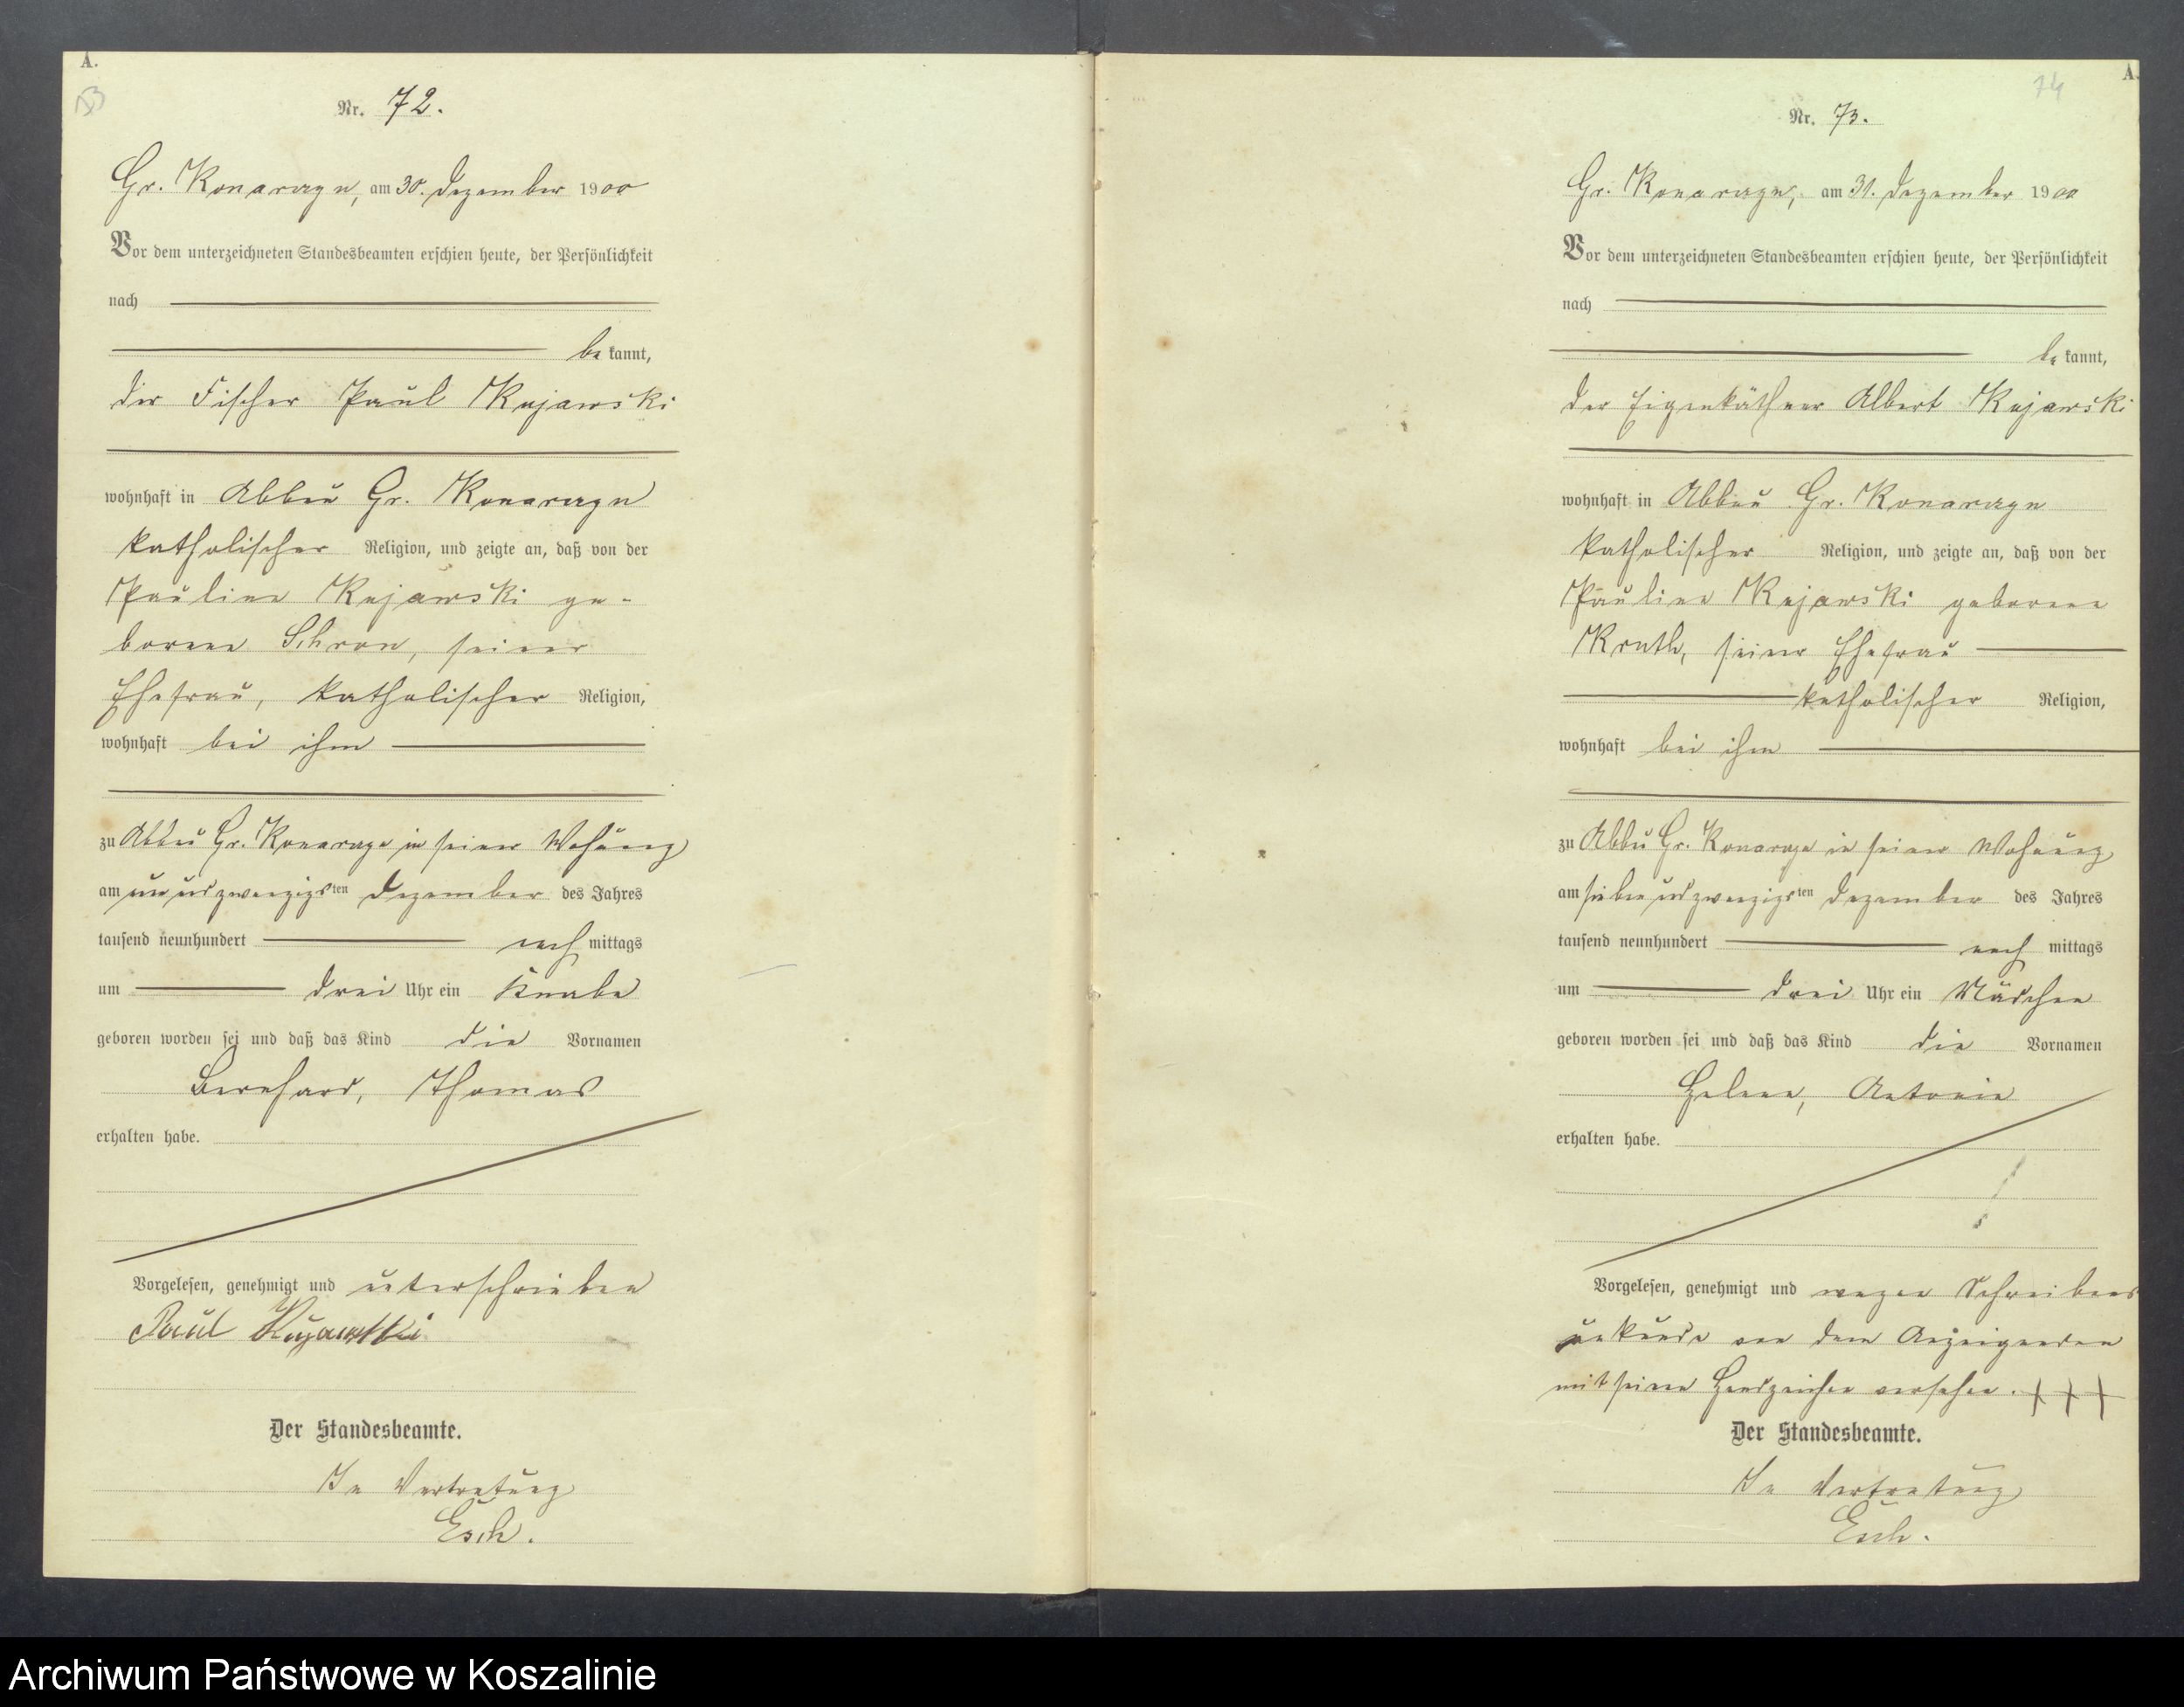 A.
73
Nr. 72.
Gr. Konarczyn, am 30. Dezember 1900
Vor dem unterzeichneten Standesbeamten erschien heute, der Persönlichkeit
nach
be kannt,
der Fischer Paul Kujawski
wohnhaft in Abbau Gr. Konarczyn
katholischer Religion, und zeigte an, daß von der
Pauline Kujawski ge-
borene Schron, seiner
Ehefrau, katholischer Religion,
wohnhaft bei ihm
zu Abbau Gr. Konarczyn in seiner Wohnung
am undzwanzigsten Dezember des Jahres
tausend neunhundert nach mittags
um drei Uhr ein Knabe
geboren worden sei und daß das Kind die Vornamen
Bernhard, Thomas
erhalten habe.
Vorgelesen, genehmigt und unterschrieben
Paul Kujawski
Der Standesbeamte.
In Vertretung
Esch.
A.
74
Nr. 73.
Gr. Konarczyn, am 31. Dezember 1900
Vor dem unterzeichneten Standesbeamten erschien heute, der Persönlichkeit
nach
be kannt,
der Eigenkäthner Albert Kujawski
wohnhaft in Abbau Gr. Konarczyn
katholischer Religion, und zeigte an, daß von der
Pauline Kujawski geborene
seiner Ehefrau
katholischer Religion,
wohnhaft bei ihm
zu Abbau Gr. Konarczyn in seiner Wohnung
am siebenundzwanzigsten Dezember des Jahres
tausend neunhundert nach mittags
um drei Uhr ein Mädchen
geboren worden sei und daß das Kind die Vornamen
Helene, Antonie
erhalten habe.
Vorgelesen, genehmigt und wegen Schreibens
unkunde von dem Anzeigenden
mit seinem Handzeichen versehen. +++
Der Standesbeamte.
In Vertretung
Esch.
Archiwum Państwowe w Koszalinie